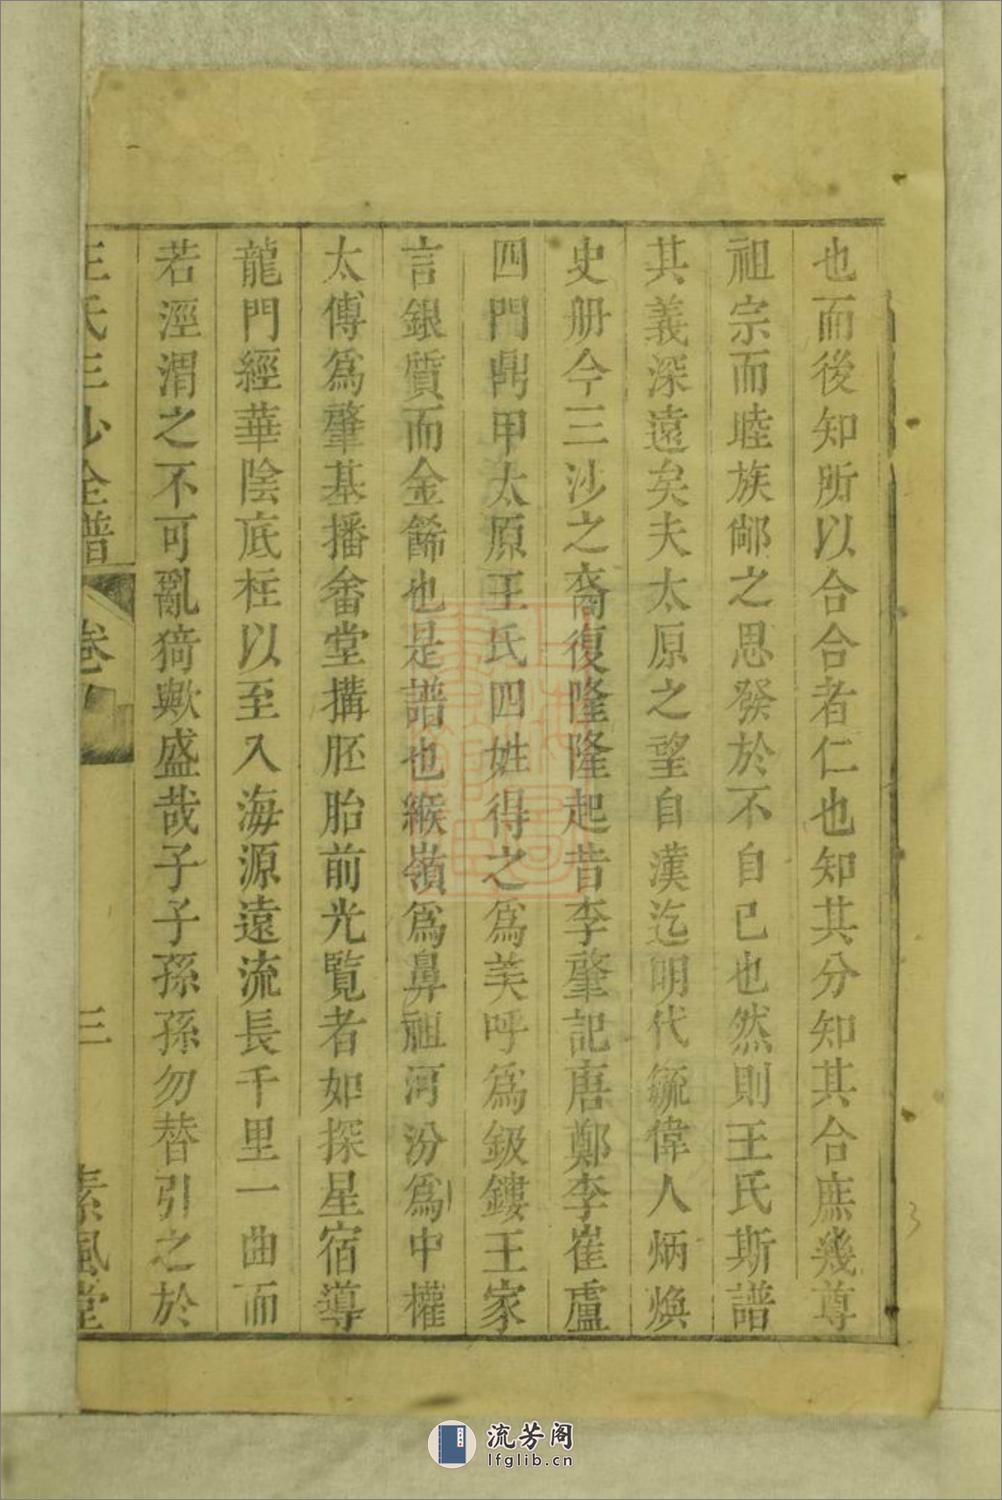 也而後知所以合合者仁也知其分知其合庶幾尊
祖宗而睦族鄰之思發於不自已也然則王氏斯譜
其義深遠矣夫太原之望自漢迄明代毓偉人炳煥
史册今三沙之裔復隆隆起昔李肇記唐鄭李崔盧
四門鼎甲太原王氏四姓得之爲美呼爲鈒鏤王家
言銀質而金餙也是譜也緱嶺爲鼻祖河汾爲中權
太傅爲肇基播畬堂搆胚胎前光覽者如探星宿導
龍門經華陰底柱以至入海源遠流長千里一曲而
若涇渭之不可亂猗歟盛哉子子孫孫勿替引之於
王氏三沙全譜 卷 三 素風堂
3
流芳阁
lfglib.cn